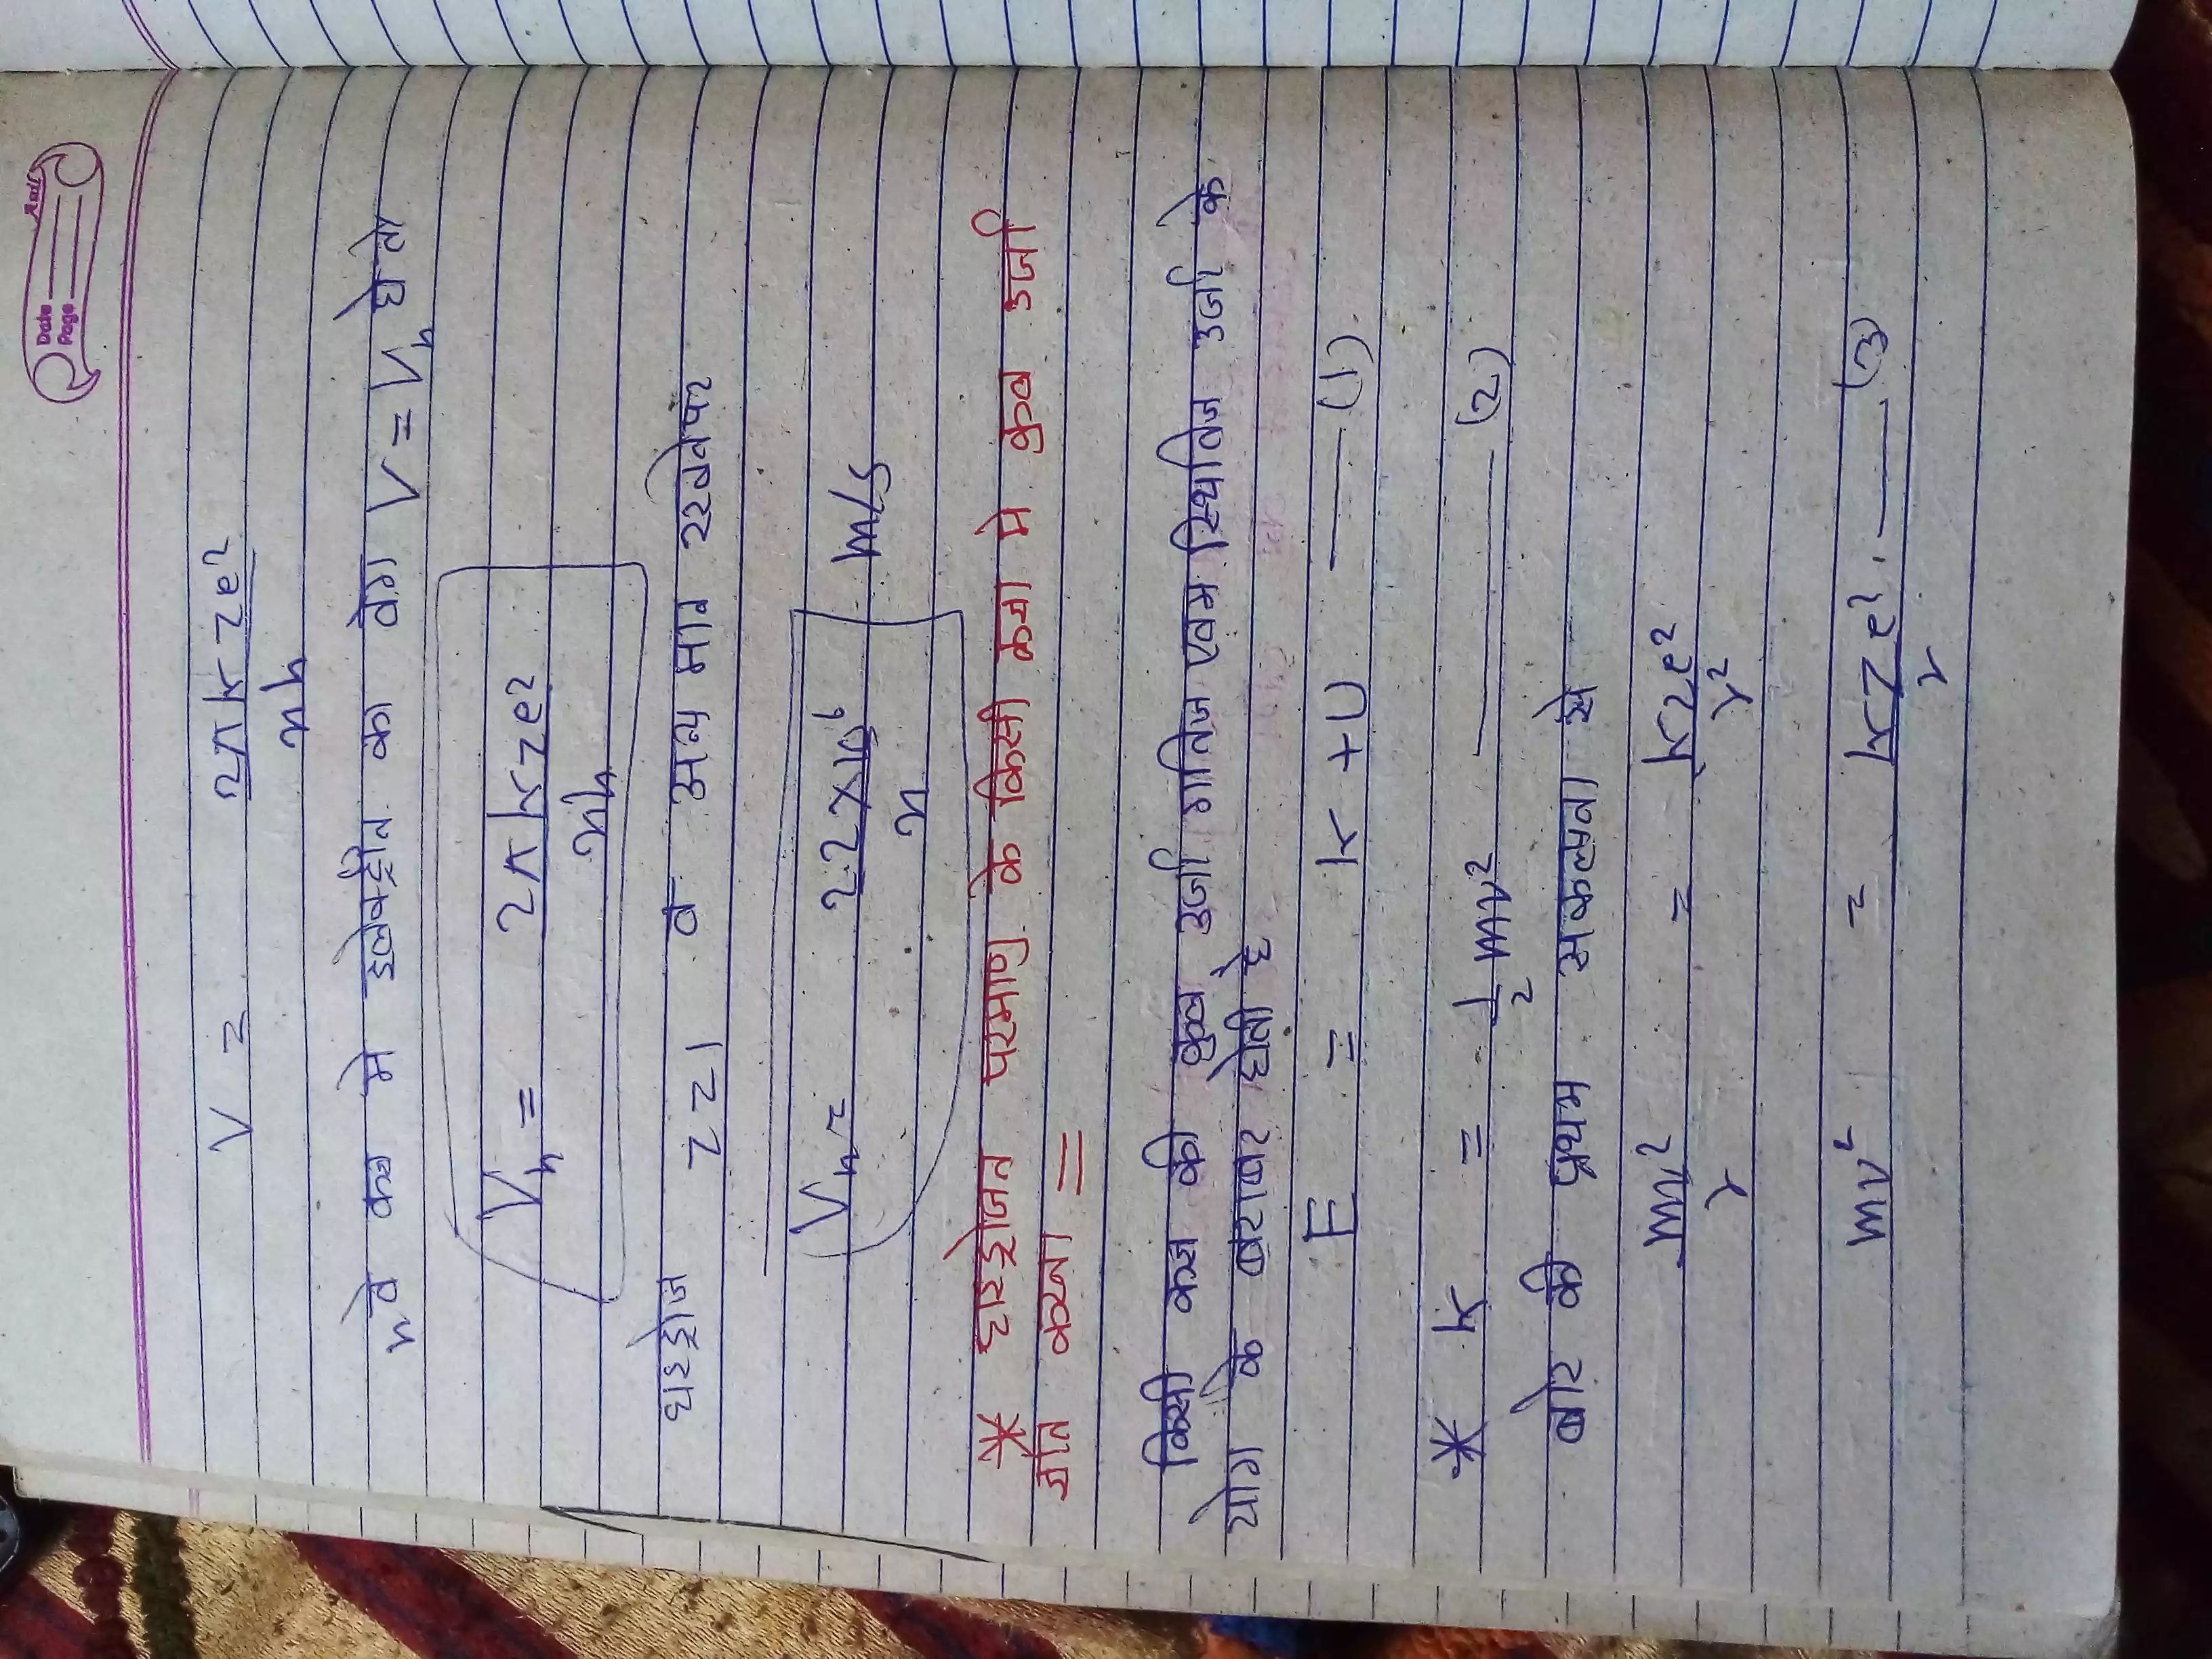 Date
Page
V = 2πkze² / nh
nवे कक्ष मे इलेक्ट्रॉन का वेग V = Vn हो तो
Vn = 2πkze² / nh
हाइड्रोज z=1 व अन्य मान रखनेपर
Vn = 2.2×10⁶ / n m/s
* हाइड्रोजन परमाणु के किसी कक्षा मे कुल उर्जा
ज्ञात करना =
किसी कक्ष की कुल उर्जा गतिज एवम स्थितिज उर्जा के
योग के बराबर होती है
E = K + U —— (1)
* K = 1/2 mv² —— (2)
बोर की प्रथम सकल्पना से
mv² / r = kze² / r²
mv² = kZe² / r —— (3)